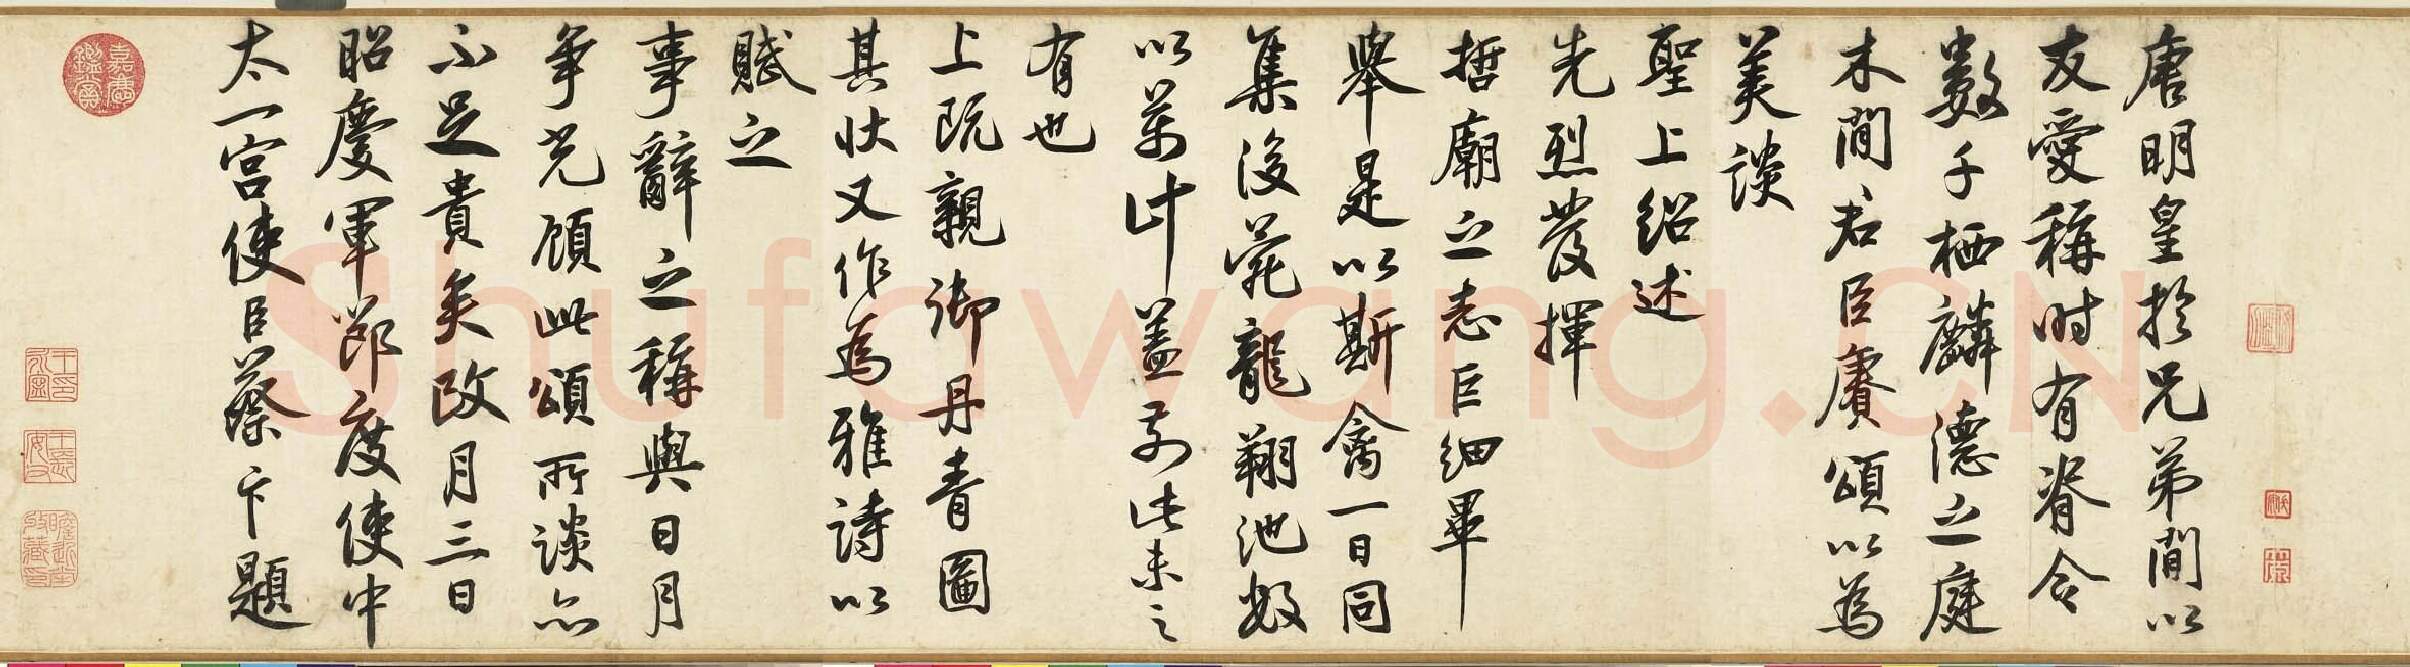 唐明皇於兄弟間以
友愛稱時有脊令
數千栖麟德之庭
木間君臣賡頌以為
美談
聖上紹述
先烈發揮
哲廟之志巨細畢
舉是以斯禽一日同
集後苑龍翔池數
以萬計蓋前此未之
有也
上既親御丹青圖
其狀又作為雅詩以
賦之
事辭之稱與日月
爭光顧此頌所談亦
不足貴矣政月三日
昭慶軍節度使中
太一宮使臣蔡卞題
嘉慶鑑賞
Shufawang.CN